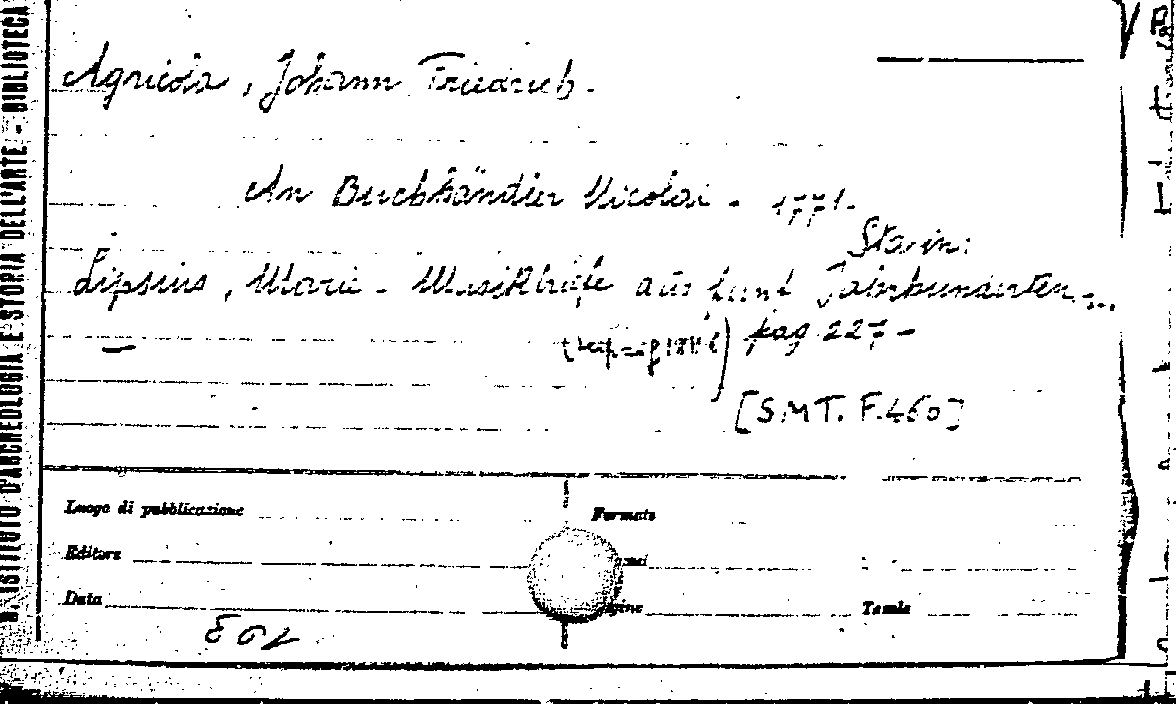 R. ISTITUTO D'ARCHEOLOGIA E STORIA DELL'ARTE - BIBLIOTECA
Agricola, Johann Friedrich.
An Buchhändler Nicolai - 1771.
Sta in:
Lipsius, Marie - Musikbriefe aus fünf Jahrhunderten
pag. 227 -
[S.M.T. F.460]
Luogo di pubblicazione
Formato
Editore
Data
Pagine
Tavole